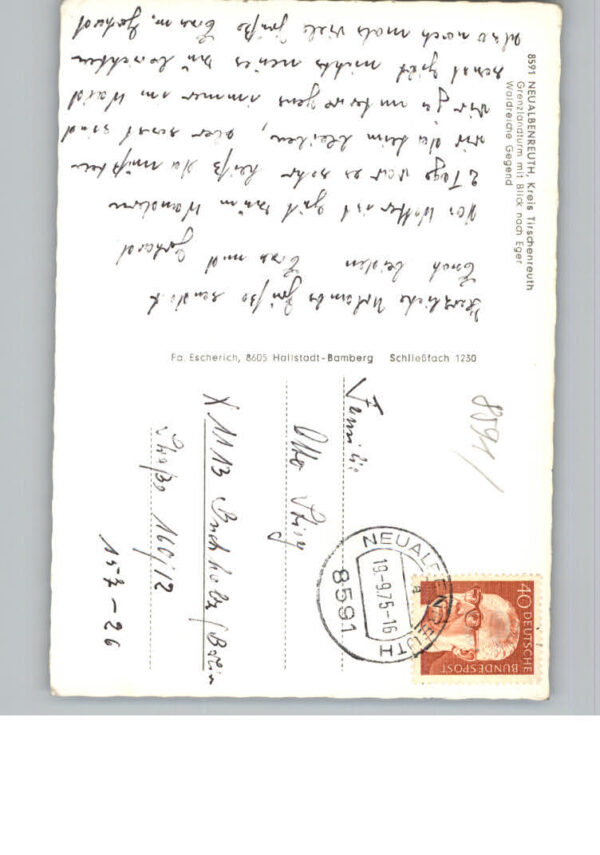 8591 NEUALBENREUTH, Kreis Tirschenreuth
Grenzlandturm mit Blick nach Eger
Waldreiche Gegend
Herzliche Urlaubs Grüße sendet
Euch beiden Erna und Gerhard
Das Wetter ist gut zum Wandern
2 Tage war es sehr heiß da mußten
wir daheim bleiben, aber sonst sind
wir ja unterwegens immer im Wald
sonst gibt nichts neues zu berichten
Also noch mals viele Grüße Erna u. Gerhard
Fa. Escherich, 8605 Hallstadt-Bamberg Schließfach 1230
8591/
Familie
Otto
X 1113 Buchholz / Berlin
Straße 160/12
157-26
NEUALBENREUTH
19-9.75-16
a
8591
40 DEUTSCHE
BUNDESPOST